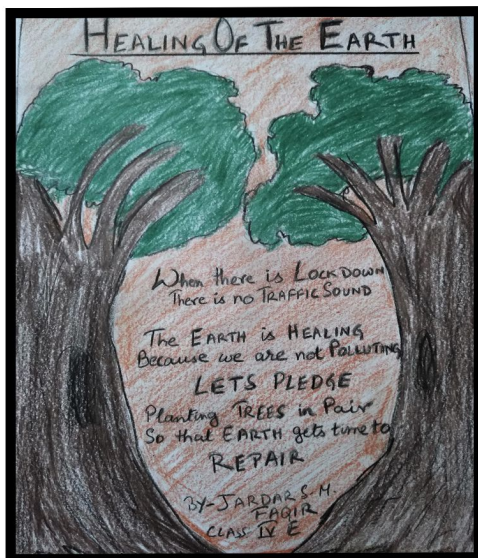 HEALING OF THE EARTH
When there is LOCKDOWN
There is no TRAFFIC SOUND
The EARTH is HEALING
Because we are not POLLUTING
LETS PLEDGE
Planting TREES in Pair
So that EARTH gets time to
REPAIR
BY- JARDAR S. M.
FAQIR
CLASS IV E